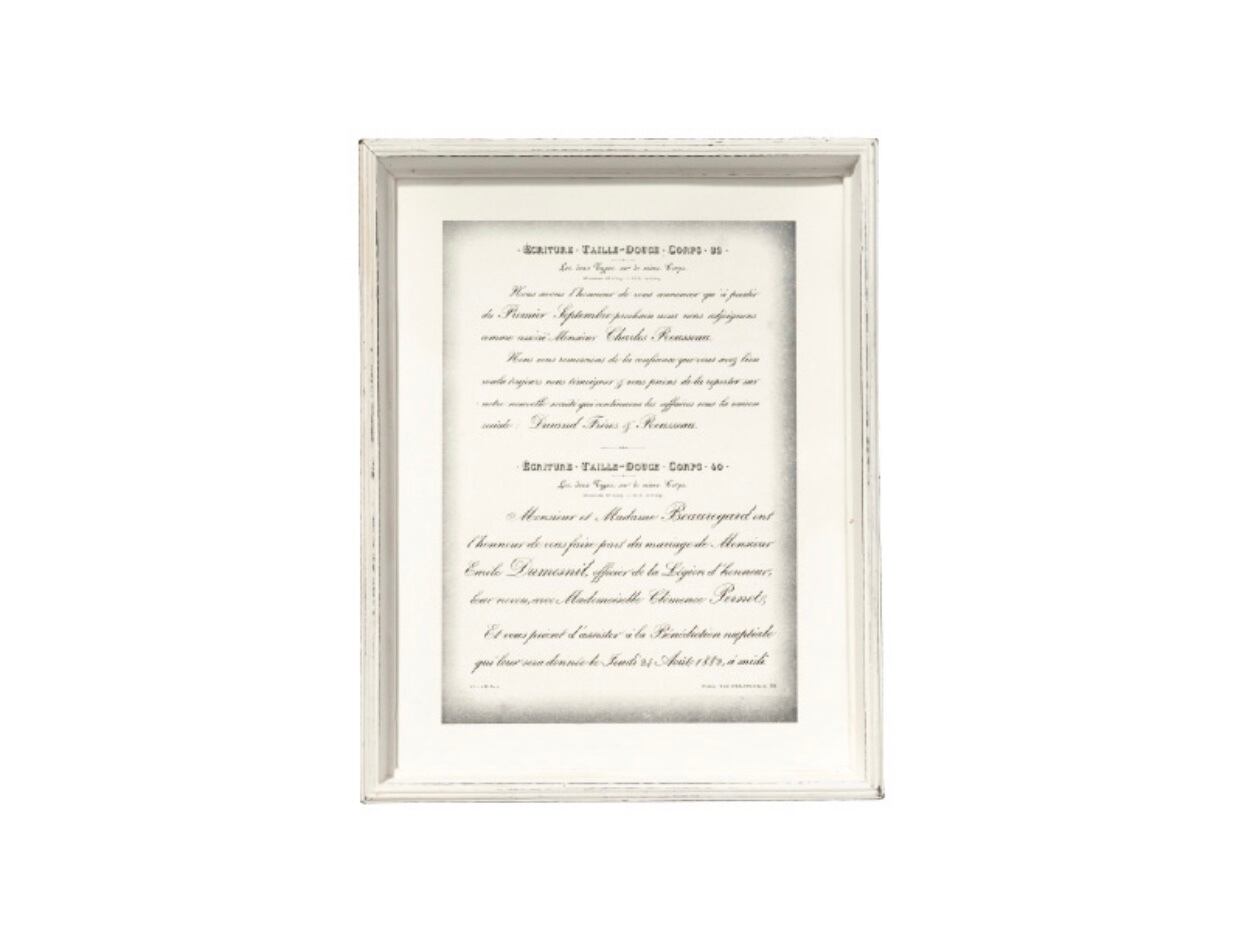 · ÉCRITURE · TAILLE-DOUCE · CORPS ·
Les deux Types sur le même Corps.
Nous avons l'honneur de vous annoncer qu'à partir
du Premier Septembre prochain nous nous adjoignons
comme associé Monsieur Charles Rousseau.
Nous vous remercions de la confiance que vous avez bien
voulu toujours nous témoigner & vous prions de la reporter sur
notre nouvelle société qui continuera les affaires sous la raison
sociale : Durand Frères & Rousseau.
· ÉCRITURE · TAILLE-DOUCE · CORPS · 40 ·
Les deux Types sur le même Corps.
Monsieur et Madame Beauregard ont
l'honneur de vous faire part du mariage de Monsieur
Emile Dumesnil, officier de la Légion d'honneur,
leur neveu, avec Mademoiselle Clémence Pernot;
Et vous prient d'assister à la Bénédiction nuptiale
qui leur sera donnée le Jeudi 24 Août 1882, à midi